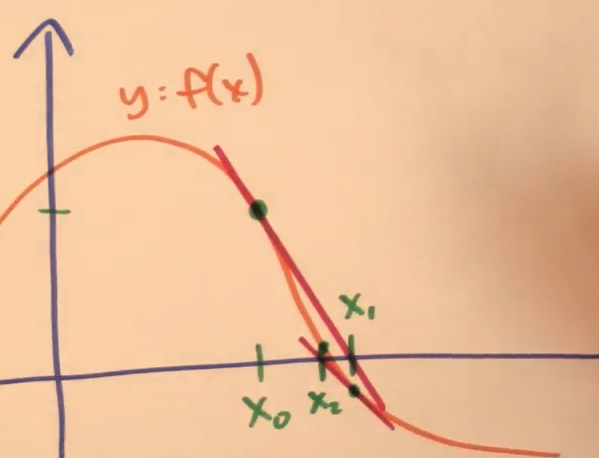 y=f(x)
x₁
x₀ x₂